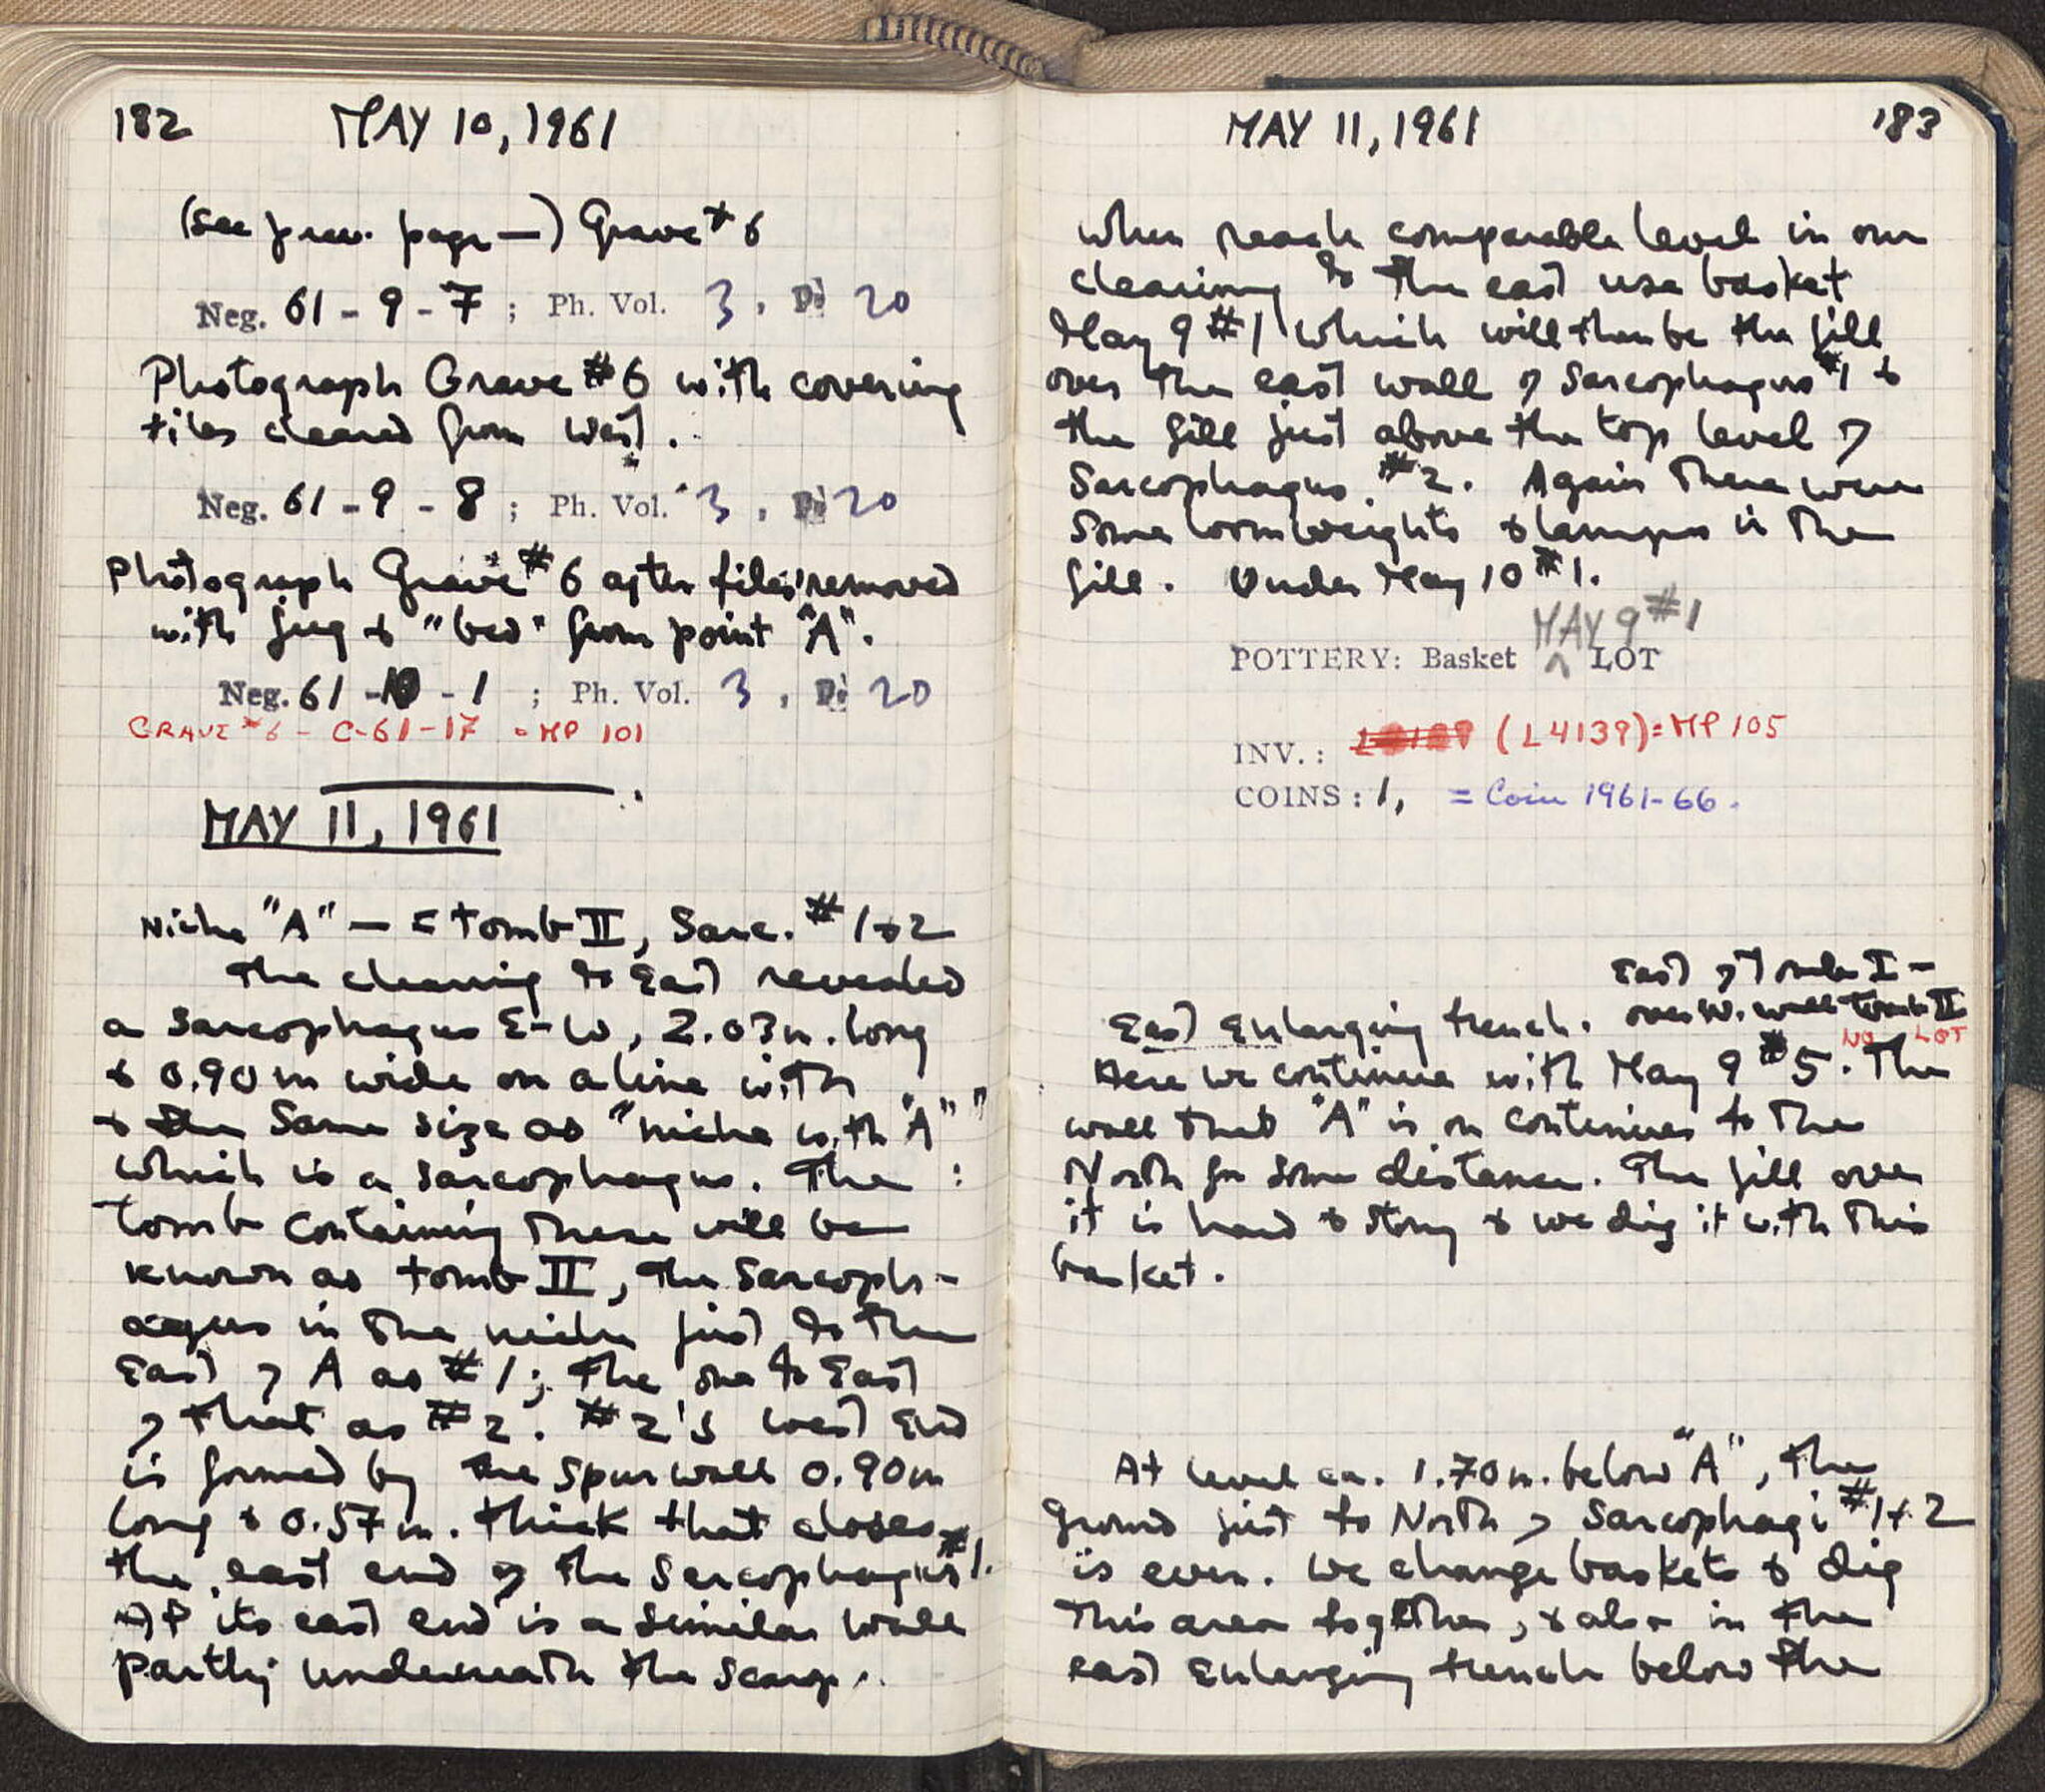 182 MAY 10, 1961
(see prev. page —) Grave #6
Neg. 61 - 9 - 7 ; Ph. Vol. 3, 20
Photograph Grave #6 with covering
tiles cleared from West.
Neg. 61 - 9 - 8 ; Ph. Vol. 3, 20
Photograph Grave #6 after tiles removed
with jug & "bed" from point "A".
Neg. 61 - 10 - 1 ; Ph. Vol. 3, 20
GRAVE #6 - C-61-17 = MP 101
MAY 11, 1961
Niche "A" — = tomb II, Sarc. #1 & 2
The clearing to East revealed
a sarcophagus E-W, 2.03m. long
& 0.90m wide on a line with
& the same size as "niche with "A""
which is a sarcophagus. The
tomb containing these will be
known as tomb II, the sarcoph-
agus in the niche just to the
East of A as #1; the one to East
of that as #2. #2's west end
is formed by the spur wall 0.90m
long & 0.57m. thick that closes
the east end of the Sarcophagus #1.
At its east end is a similar wall
partly underneath the scarp.
MAY 11, 1961 183
When reach comparable level in our
clearing to the east use basket
May 9 #1 which will then be the fill
over the east wall of Sarcophagus #1 &
the fill just above the top level of
Sarcophagus #2. Again there were
some loomweights & lamps in the
fill. Under May 10 #1.
MAY 9 #1
POTTERY: Basket ^ LOT
INV.: (L4139) = MP 105
COINS: 1, = Coin 1961-66.
East of Tomb I —
East Enlarging trench. over W. wall tomb II
NO LOT
Here we continue with May 9 #5. The
wall that "A" is on continues to the
North for some distance. The fill over
it is hard & stony & we dig it with this
basket.
At level ca. 1.70m. below "A", the
ground just to North of Sarcophagi #1 & 2
is even. We change baskets & dig
this area together, & also in the
east enlarging trench below the